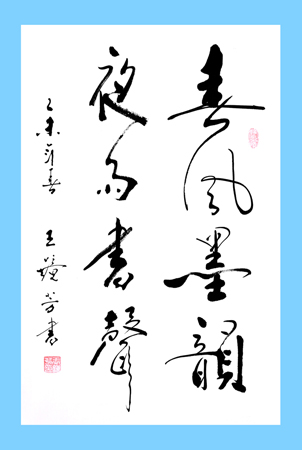 春風墨韻
夜雨書聲
乙未年春 王 芳書